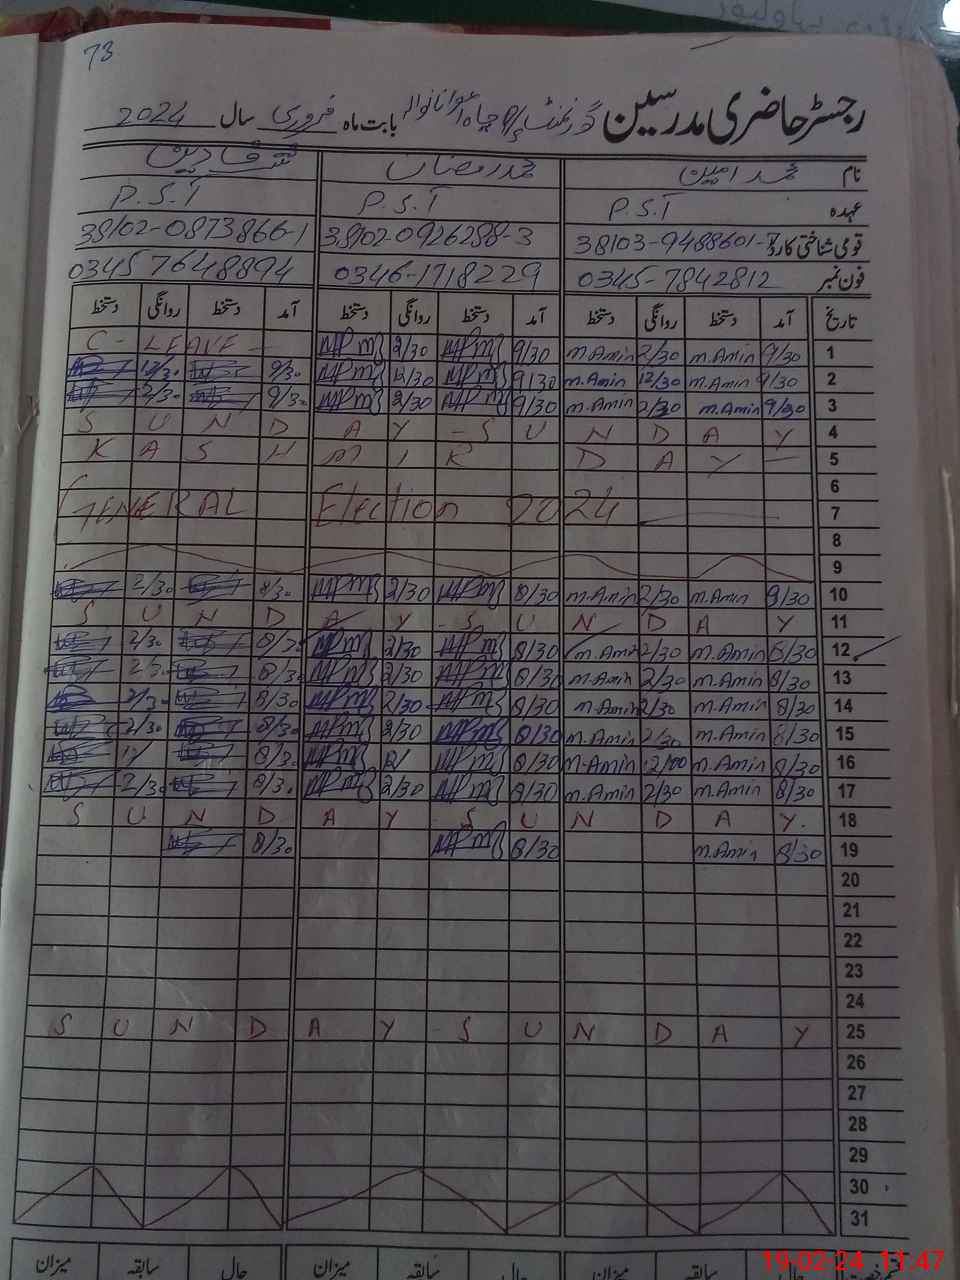 73
رجسٹر حاضری مدرسین گورنمنٹ بابت ماہ فروری سال 2024
نام محمد امین محمد رمضان
عہدہ P.S.T P.S.T P.S.T
قومی شناختی کارڈ 38103-9488601-7 38102-0926288-3 38102-0873866-1
فون نمبر 0345-7842812 0346-1718229 03457648894
تاریخ آمد دستخط روانگی دستخط آمد دستخط روانگی دستخط آمد دستخط روانگی دستخط
1 9/30 m.Amin 2/30 m.Amin 9/30 2/30 C-LEAVE
2 9/30 m.Amin 12/30 m.Amin 9/30 12/30 9/30 12/30
3 9/30 m.Amin 2/30 m.Amin 9/30 2/30 9/30 2/30
4 SUNDAY - SUNDAY
5 KASHMIR DAY
6
7 GENERAL Election 2024
8
9
10 9/30 m.Amin 2/30 m.Amin 8/30 2/30 8/30 2/30
11 SUNDAY - SUNDAY
12 8/30 m.Amin 2/30 m.Amin 8/30 2/30 8/30 2/30
13 8/30 m.Amin 2/30 m.Amin 8/30 2/30 8/30 2/30
14 8/30 m.Amin 2/30 m.Amin 8/30 2/30 8/30 2/30
15 8/30 m.Amin 2/30 m.Amin 8/30 2/30 8/30 2/30
16 8/30 m.Amin 12/00 m.Amin 8/30 12/ 8/30 12/
17 8/30 m.Amin 2/30 m.Amin 8/30 2/30 8/30 2/30
18 SUNDAY SUNDAY
19 8/30 m.Amin 8/30 8/30
20
21
22
23
24
25 SUNDAY - SUNDAY
26
27
28
29
30
31
حال سابقہ میزان حال سابقہ میزان
19-02-24 11:47